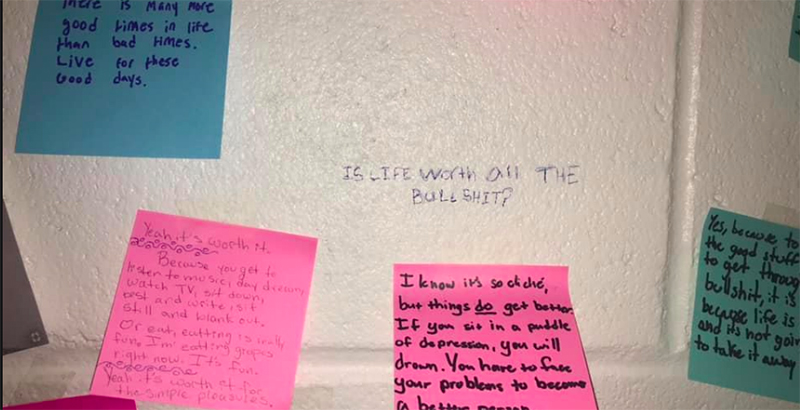 There is many more
good times in life
than bad times.
Live for these
Good days.
IS LIFE Worth all THE
BULLSHIT?
Yeah it's worth it.
Because you get to
listen to music, day dream,
watch TV, sit down,
rest and write, sit
still and blank out.
Or eat, eating is really
fun, I'm eating grapes
right now. It's fun.
Yeah it's worth it for
the simple pleasures.
I know it's so cliché,
but things do get better.
If you sit in a puddle
of depression, you will
drown. You have to face
your problems to become
a better person
Yes, because to
the good stuff
to get through
bullshit, it is
because life is
and it's not goin
to take it away